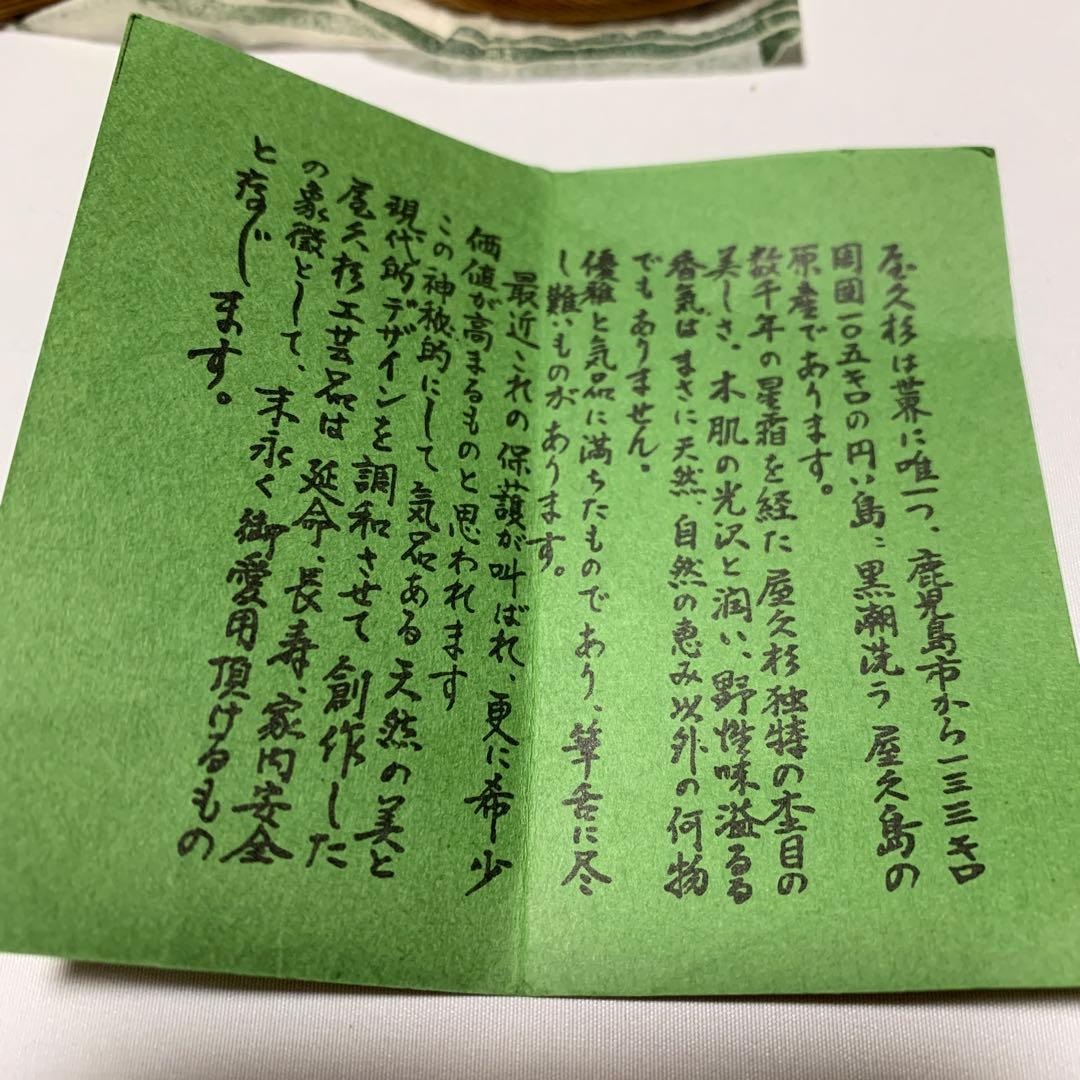 屋久杉は世界に唯一つ、鹿児島市から一三三キロ
周囲一〇五キロの円い島、黒潮洗う屋久島の
原産であります。
数千年の星霜を経た屋久杉独特の杢目の
美しさ、木肌の光沢と潤い、野性味溢るる
香気はまさに天然、自然の恵み以外の何物
でもありません。
優雅と気品に満ちたものであり、筆舌に尽
し難いものがあります。
最近これの保護が叫ばれ、更に希少
価値が高まるものと思われます
この神秘的にして気品ある天然の美と
現代的デザインを調和させて創作した
屋久杉工芸品は延命、長寿、家内安全
の象徴として、末永く御愛用頂けるもの
と存じます。